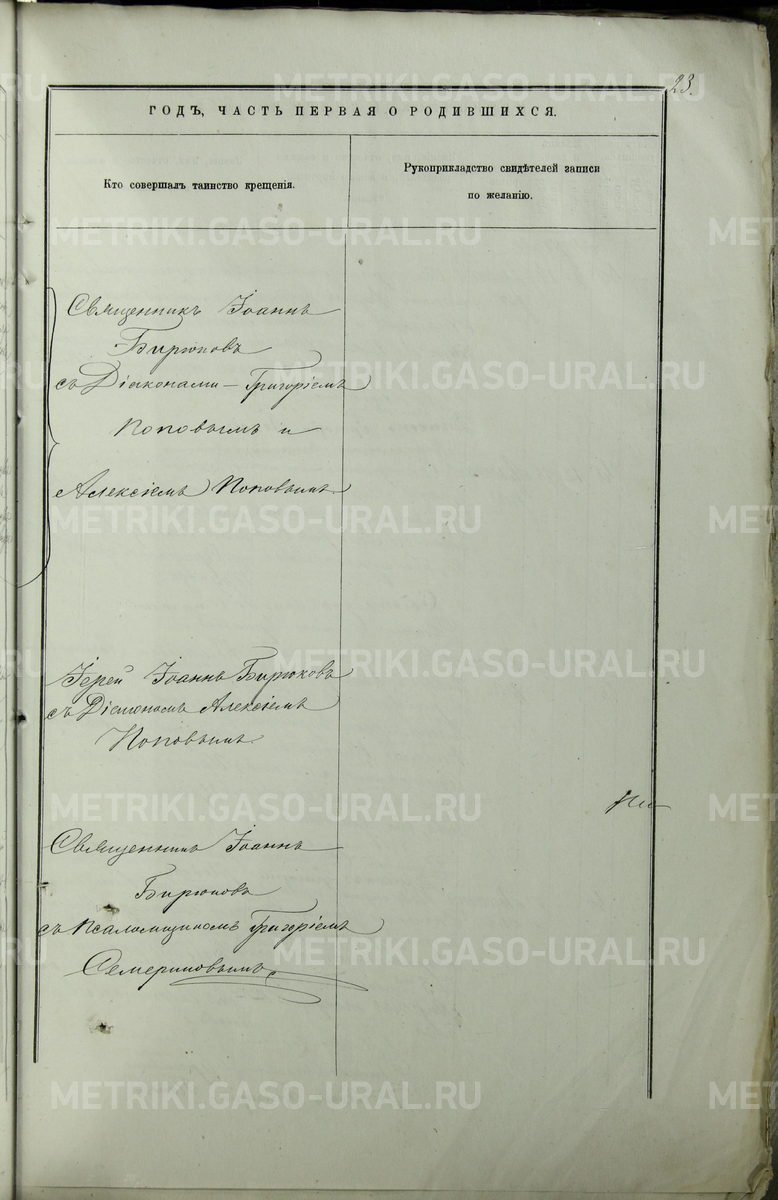 23.
ГОДЪ, ЧАСТЬ ПЕРВАЯ О РОДИВШИХСЯ.
Кто совершалъ таинство крещенія.
Рукоприкладство свидѣтелей записи
по желанію.
Священникъ Іоаннъ
Бирюковъ
съ Діаконами – Григоріемъ
Поповымъ и
Алексіемъ Поповымъ
Іерей Іоаннъ Бирюковъ
съ Діакономъ Алексіемъ
Поповымъ.
Священникъ Іоаннъ
Бирюковъ
съ псаломщикомъ Григоріемъ
Семериковымъ
METRIKI.GASO-URAL.RU